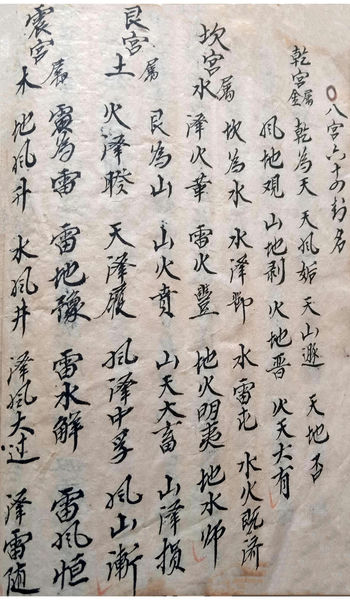 八宫六十四卦名
乾宫属金 乾為天 天风姤 天山遯 天地否
风地观 山地剥 火地晋 火天大有
坎宫属水 坎為水 水泽節 水雷屯 水火既济
泽火革 雷火豐 地火明夷 地水师
艮宫属土 艮為山 山火賁 山天大畜 山泽损
火泽睽 天泽履 风泽中孚 风山漸
震宫属木 震為雷 雷地豫 雷水解 雷风恒
地风升 水风井 泽风大过 泽雷随